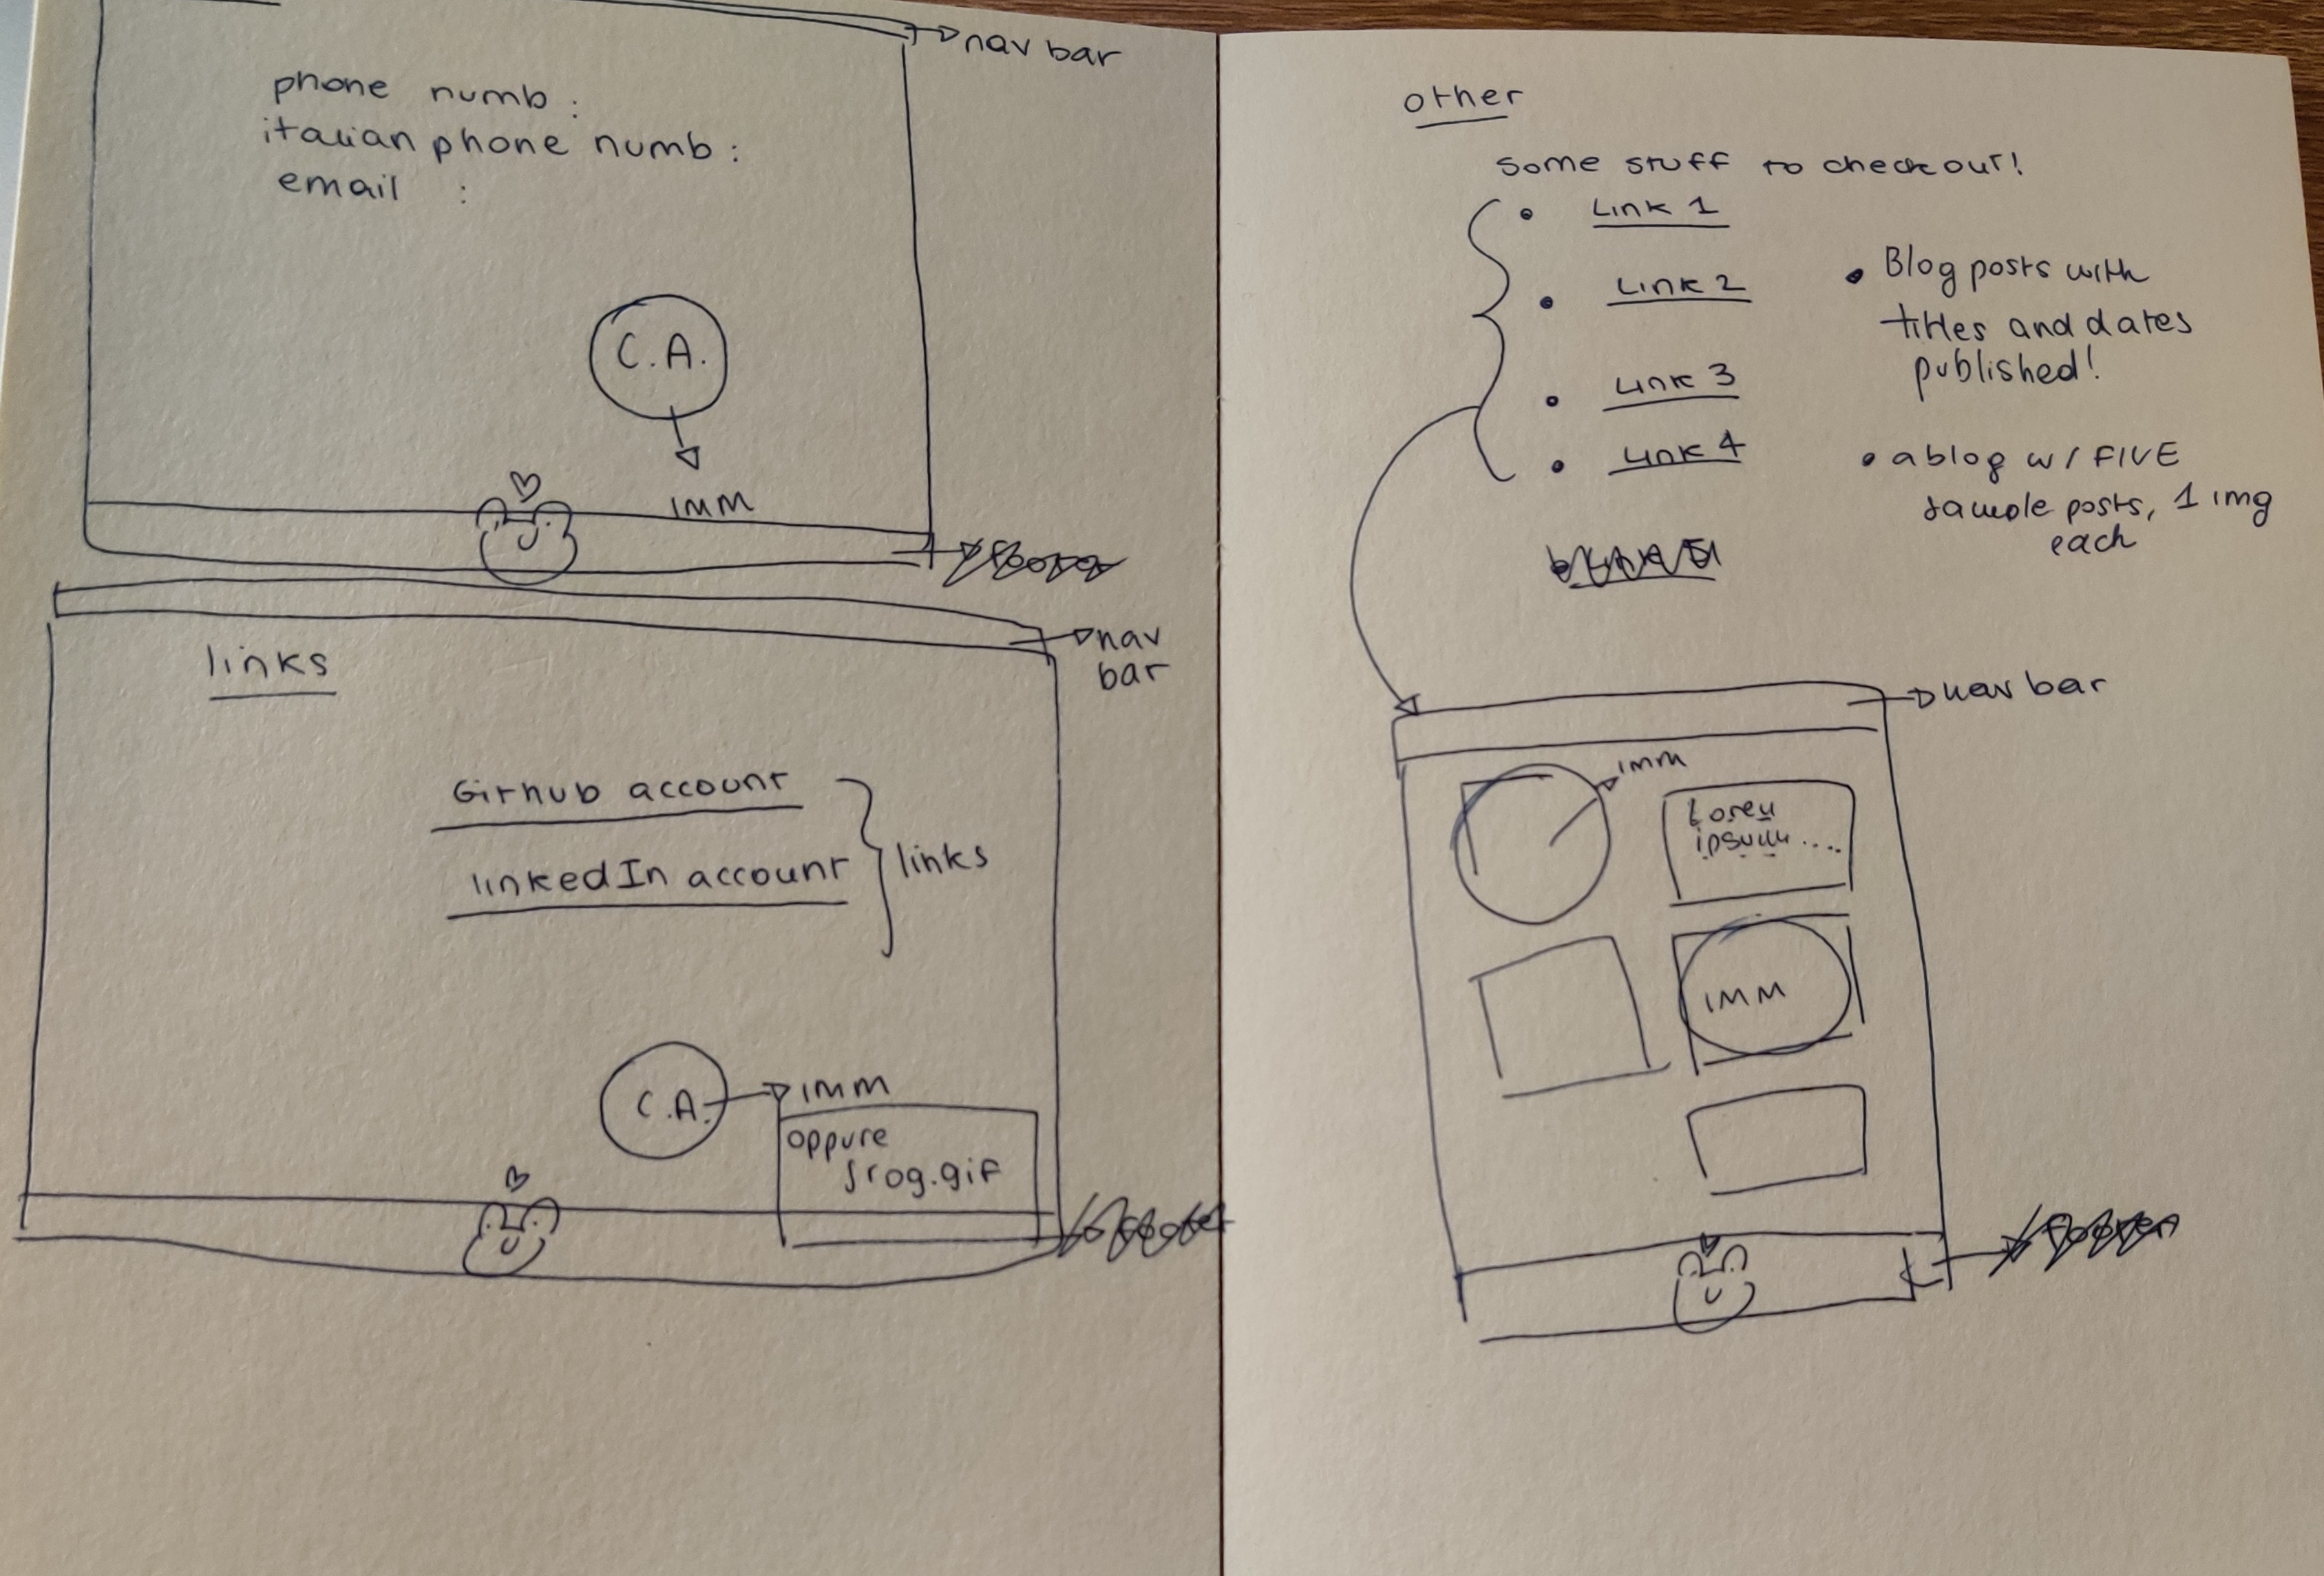 nav bar
phone numb :
italian phone numb :
email :
C.A.
IMM
nav
bar
links
Github account
linkedIn account
links
C.A.
IMM
oppure
frog.gif
other
some stuff to checkout!
Link 1
Link 2
Link 3
Link 4
Blog posts with
titles and dates
published!
a blog w/ FIVE
sample posts, 1 img
each
nav bar
IMM
Lorem
ipsum....
IMM